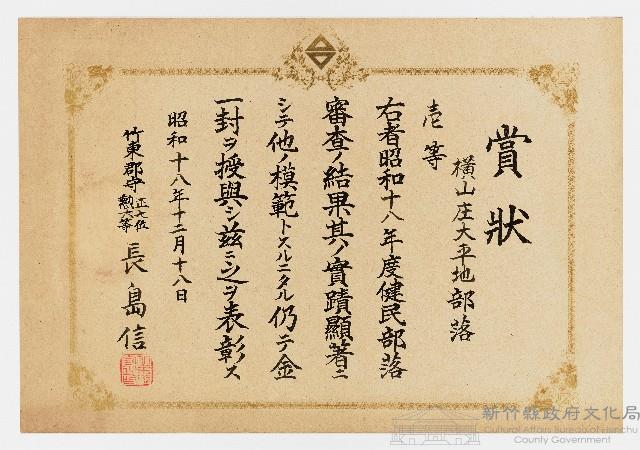 賞狀
橫山庄大平地部落
壱等
右者昭和十八年度健民部落
審查ノ結果其ノ實蹟顯著ニ
シテ他ノ模範トスルニタル仍テ金
一封ヲ授與シ茲ニ之ヲ表彰ス
昭和十八年十二月十八日
竹東郡守 正七位 勲六等 長島信
新竹縣政府文化局
Cultural Affairs Bureau of Hsinchu
County Government